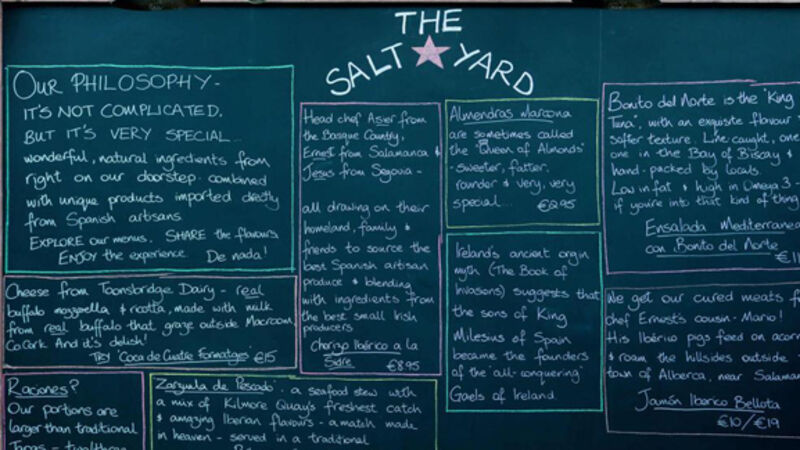 THE
SALT YARD
OUR PHILOSOPHY-
IT'S NOT COMPLICATED.
BUT IT'S VERY SPECIAL...
wonderful, natural ingredients from
right on our doorstep. combined
with unique products imported directly
from Spanish artisans
EXPLORE our menus. SHARE the flavours
ENJOY the experience. De nada!
Cheese from Toonsbridge Dairy - real
buffalo mozzarella & ricotta, made with milk
from real buffalo that graze outside Macroom,
Co.Cork. And it's delish!
TRY 'Coca de Cuatre Formatges' €15
Raciones?
Our portions are
larger than traditional
Tapas -
Zarzuela de Pescado' - a seafood stew with
a mix of Kilmore Quay's freshest catch
& amazing Iberian flavours - a match made
in heaven - served in a traditional
Head chef Asier from
the Basque Country,
Ernest from Salamanca &
Jesus from Segovia -
all drawing on their
homeland, family &
friends to source the
best Spanish artisan
produce & blending
with ingredients from
the best small Irish
producers
Chorizo Ibérico a la
Sidre €8.95
Almendras Marcona
are sometimes called
the 'Queen of Almonds'
- sweeter, fatter,
rounder & very, very
special... €2.95
Ireland's ancient orgin
myth (The Book of
Invasions) suggests that
the sons of King
Milesius of Spain
became the founders
of the 'all-conquering'
Gaels of Ireland.
Bonito del Norte is the 'King
Tuna', with an exquisite flavour
softer texture. Line caught, one
one in the Bay of Biscay &
hand-packed by locals.
Low in fat & high in Omega 3 -
if you're into that kind of thing
Ensalada Mediterranea
con Bonito del Norte
€11
We get our cured meats f
chef Ernest's cousin - Mario!
His Ibérico pigs feed on acorn
& roam the hillsides outside
town of Alberca, near Salaman
Jamón Iberico Bellota
€10/€19